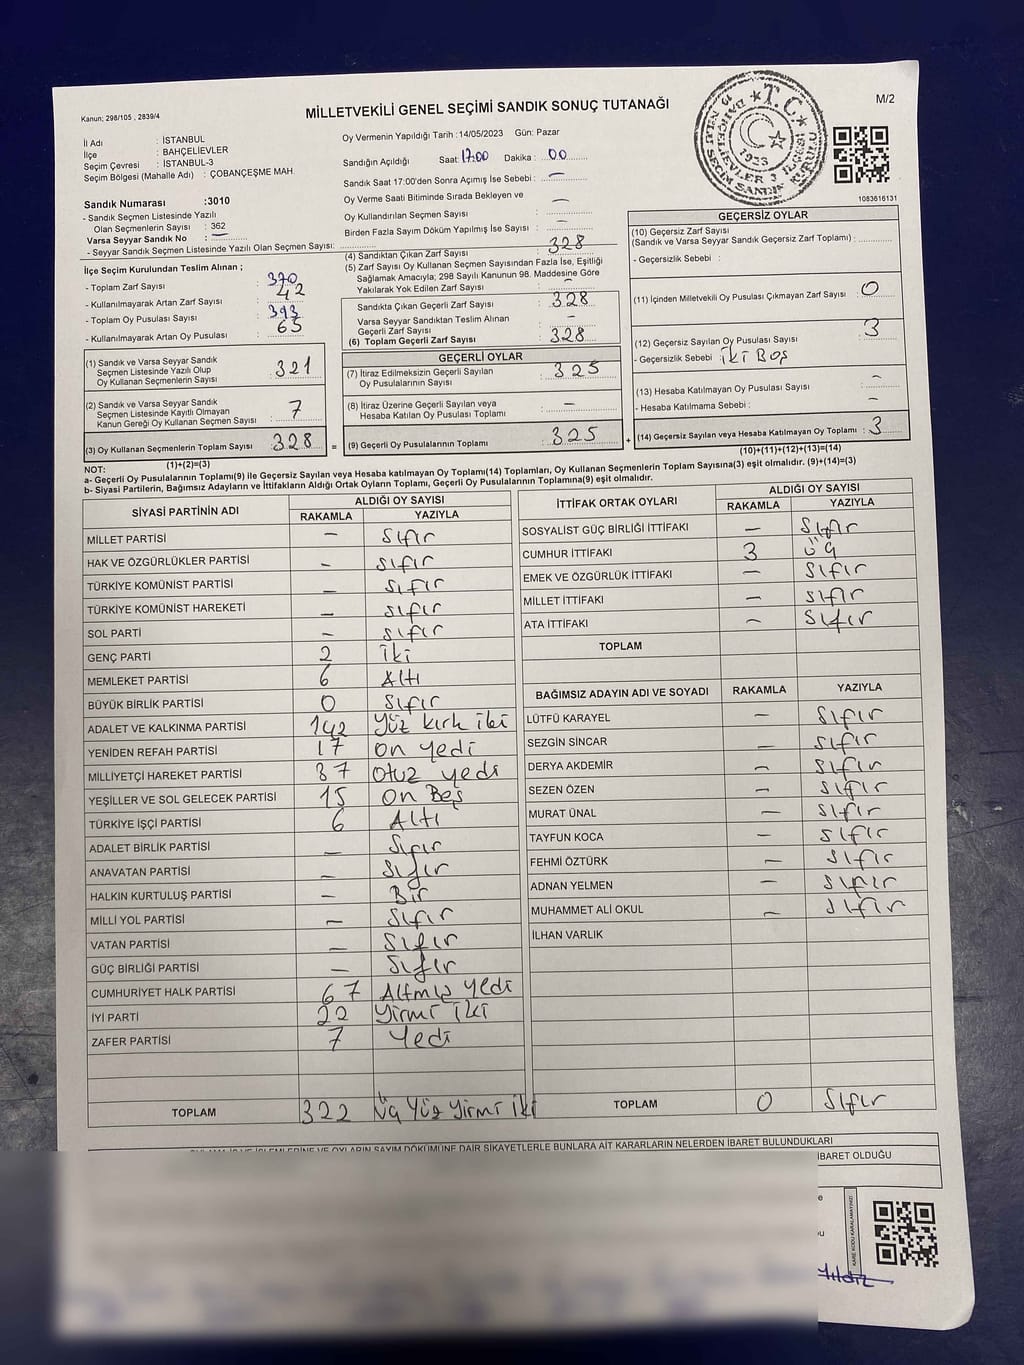 Kanun; 298/105 , 2839/4
MİLLETVEKİLİ GENEL SEÇİMİ SANDIK SONUÇ TUTANAĞI
M/2
İl Adı : İSTANBUL
İlçe : BAHÇELİEVLER
Seçim Çevresi : İSTANBUL-3
Seçim Bölgesi (Mahalle Adı) : ÇOBANÇEŞME MAH.
Sandık Numarası :3010
- Sandık Seçmen Listesinde Yazılı
Olan Seçmenlerin Sayısı : 362
Varsa Seyyar Sandık No : —
- Seyyar Sandık Seçmen Listesinde Yazılı Olan Seçmen Sayısı:
Oy Vermenin Yapıldığı Tarih :14/05/2023 Gün: Pazar
Sandığın Açıldığı Saat: 17:00 Dakika : 00
Sandık Saat 17:00'den Sonra Açımış İse Sebebi : —
Oy Verme Saati Bitiminde Sırada Bekleyen ve
Oy Kullandırılan Seçmen Sayısı : —
Birden Fazla Sayım Döküm Yapılmış İse Sayısı : —
T.C.
1923
1083616131
İlçe Seçim Kurulundan Teslim Alınan ;
- Toplam Zarf Sayısı : 370
- Kullanılmayarak Artan Zarf Sayısı : 42
- Toplam Oy Pusulası Sayısı : 393
- Kullanılmayarak Artan Oy Pusulası : 65
(1) Sandık ve Varsa Seyyar Sandık
Seçmen Listesinde Yazılı Olup
Oy Kullanan Seçmenlerin Sayısı : 321
(2) Sandık ve Varsa Seyyar Sandık
Seçmen Listesinde Kayıtlı Olmayan
Kanun Gereği Oy Kullanan Seçmen Sayısı : 7
(3) Oy Kullanan Seçmenlerin Toplam Sayısı : 328
(1)+(2)=(3)
(4) Sandıktan Çıkan Zarf Sayısı : 328
(5) Zarf Sayısı Oy Kullanan Seçmen Sayısından Fazla İse, Eşitliği
Sağlamak Amacıyla; 298 Sayılı Kanunun 98. Maddesine Göre
Yakılarak Yok Edilen Zarf Sayısı : —
Sandıkta Çıkan Geçerli Zarf Sayısı : 328
Varsa Seyyar Sandıktan Teslim Alınan
Geçerli Zarf Sayısı : —
(6) Toplam Geçerli Zarf Sayısı : 328
GEÇERLİ OYLAR
(7) İtiraz Edilmeksizin Geçerli Sayılan
Oy Pusulalarının Sayısı : 325
(8) İtiraz Üzerine Geçerli Sayılan veya
Hesaba Katılan Oy Pusulası Toplamı : —
= (9) Geçerli Oy Pusulalarının Toplamı : 325
GEÇERSİZ OYLAR
(10) Geçersiz Zarf Sayısı
(Sandık ve Varsa Seyyar Sandık Geçersiz Zarf Toplamı) :
- Geçersizlik Sebebi :
(11) İçinden Milletvekili Oy Pusulası Çıkmayan Zarf Sayısı : 0
(12) Geçersiz Sayılan Oy Pusulası Sayısı : 3
- Geçersizlik Sebebi : İki Boş
(13) Hesaba Katılmayan Oy Pusulası Sayısı : —
- Hesaba Katılmama Sebebi : —
+ (14) Geçersiz Sayılan veya Hesaba Katılmayan Oy Toplamı : 3
(10)+(11)+(12)+(13)=(14)
NOT:
a- Geçerli Oy Pusulalarının Toplamı(9) ile Geçersiz Sayılan veya Hesaba katılmayan Oy Toplamı(14) Toplamları, Oy Kullanan Seçmenlerin Toplam Sayısına(3) eşit olmalıdır. (9)+(14)=(3)
b- Siyasi Partilerin, Bağımsız Adayların ve İttifakların Aldığı Ortak Oyların Toplamı, Geçerli Oy Pusulalarının Toplamına(9) eşit olmalıdır.
SİYASİ PARTİNİN ADI ALDIĞI OY SAYISI
RAKAMLA YAZIYLA
MİLLET PARTİSİ — Sıfır
HAK VE ÖZGÜRLÜKLER PARTİSİ — Sıfır
TÜRKİYE KOMÜNİST PARTİSİ — Sıfır
TÜRKİYE KOMÜNİST HAREKETİ — Sıfır
SOL PARTİ — Sıfır
GENÇ PARTİ 2 İki
MEMLEKET PARTİSİ 6 Altı
BÜYÜK BİRLİK PARTİSİ 0 Sıfır
ADALET VE KALKINMA PARTİSİ 142 Yüz kırk iki
YENİDEN REFAH PARTİSİ 17 on yedi
MİLLİYETÇİ HAREKET PARTİSİ 37 Otuz yedi
YEŞİLLER VE SOL GELECEK PARTİSİ 15 On Beş
TÜRKİYE İŞÇİ PARTİSİ 6 Altı
ADALET BİRLİK PARTİSİ — Sıfır
ANAVATAN PARTİSİ — Sıfır
HALKIN KURTULUŞ PARTİSİ — Bir
MİLLİ YOL PARTİSİ — Sıfır
VATAN PARTİSİ — Sıfır
GÜÇ BİRLİĞİ PARTİSİ — Sıfır
CUMHURİYET HALK PARTİSİ 67 Altmış yedi
İYİ PARTİ 22 Yirmi iki
ZAFER PARTİSİ 7 Yedi
TOPLAM 322 Üç Yüz yirmi iki
İTTİFAK ORTAK OYLARI ALDIĞI OY SAYISI
RAKAMLA YAZIYLA
SOSYALİST GÜÇ BİRLİĞİ İTTİFAKI — Sıfır
CUMHUR İTTİFAKI 3 üç
EMEK VE ÖZGÜRLÜK İTTİFAKI — Sıfır
MİLLET İTTİFAKI — Sıfır
ATA İTTİFAKI — Sıfır
TOPLAM
BAĞIMSIZ ADAYIN ADI VE SOYADI RAKAMLA YAZIYLA
LÜTFÜ KARAYEL — Sıfır
SEZGİN SİNCAR — Sıfır
DERYA AKDEMİR — Sıfır
SEZEN ÖZEN — Sıfır
MURAT ÜNAL — Sıfır
TAYFUN KOCA — Sıfır
FEHMİ ÖZTÜRK — Sıfır
ADNAN YELMEN — Sıfır
MUHAMMET ALİ OKUL — Sıfır
İLHAN VARLIK
TOPLAM 0 Sıfır
OYLARIN SAYIM DÖKÜMÜNE DAİR ŞİKAYETLERLE BUNLARA AİT KARARLARIN NELERDEN İBARET BULUNDUKLARI
İBARET OLDUĞU
KARE KODU KARALAMAYINIZ!
Yıldız